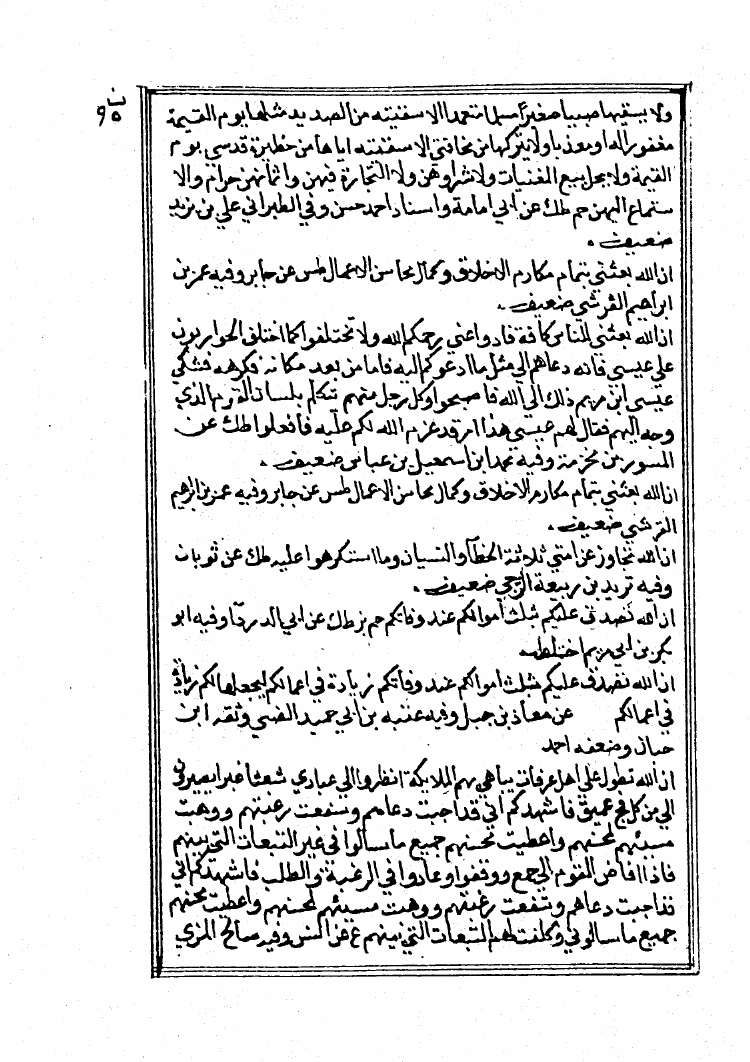 ن
٩٥
ولا يسقيها صبيا صغيرا مسلما متعمدا الا سقيته من الصديد مثلها يوم القيمة
مغفورا له او معذبا ولا يتركها من مخافتي الا سقيته اياها من حظيرة قدسي يوم
القيمة ولا يحل بيع المغنيات ولا شراوهن ولا التجارة فيهن واثمانهن حرام والا
ستماع اليهن حم طك عن ابي امامة واسناد احمد حسن وفي الطبراني علي بن يزيد
ضعيف .
ان الله بعثني بتمام مكارم الاخلاق وكمال محاسن الاعمال طس عن جابر وفيه عمر بن
ابراهيم القرشي ضعيف .
ان الله بعثني للناس كافة فادوا عني رحمكم الله ولا تختلفوا كما اختلف الحواريون
علي عيسي فانه دعاهم الي مثل ما ادعوكم اليه فاما من بعد مكانه فكرهه فشكي
عيسي ابن مريم ذلك الي الله فاصبحوا وكل رجل منهم يتكلم بلسان القوم الذي
وجه اليهم فقال لهم عيسي هذا امر قد عزم الله لكم عليه فافعلوا طك عن
المسور بن مخرمة وفيه محمد ابن اسمعيل بن عياش ضعيف .
ان الله بعثني بتمام مكارم الاخلاق وكمال محاسن الاعمال طس عن جابر وفيه عمر بن ابراهيم
القرشي ضعيف .
ان الله تجاوز عن امتي ثلاثة الخطأ والنسيان وما استكرهوا عليه طك عن ثوبان
وفيه يزيد بن ربيعة الرحبي ضعيف .
ان الله تصدق عليكم بثلث اموالكم عند وفاتكم حم بز طك عن ابي الدرداء وفيه ابو
بكر بن ابي مريم اختلط
ان الله تصدق عليكم بثلث اموالكم عند وفاتكم زيادة في اعمالكم ليجعلها لكم زيادة
في اعمالكم عن معاذ بن جبل وفيه عتبه بن ابي حميد الضبي وثقه ابن
حبان وضعفه احمد
ان الله تطول علي اهل عرفات يباهي بهم الملايكة انظروا الي عبادي شعثا غبرا
الي من كل فج عميق فاشهدكم اني قد اجبت دعاهم وشفعت رغبتهم ووهبت
مسيئهم لمحسنهم واعطيت محسنهم جميع ما سالوا في غير التبعات التي بينهم
فاذا افاض القوم الي جمع ووقفوا وعادوا في الرغبة والطلب فاشهدكم اني
قد اجبت دعاهم وشفعت رغبتهم ووهبت مسيئهم لمحسنهم واعطيت محسنهم
جميع ما سالوني وكفلت لهم التبعات التي بينهم ع عن انس وفيه صالح المري